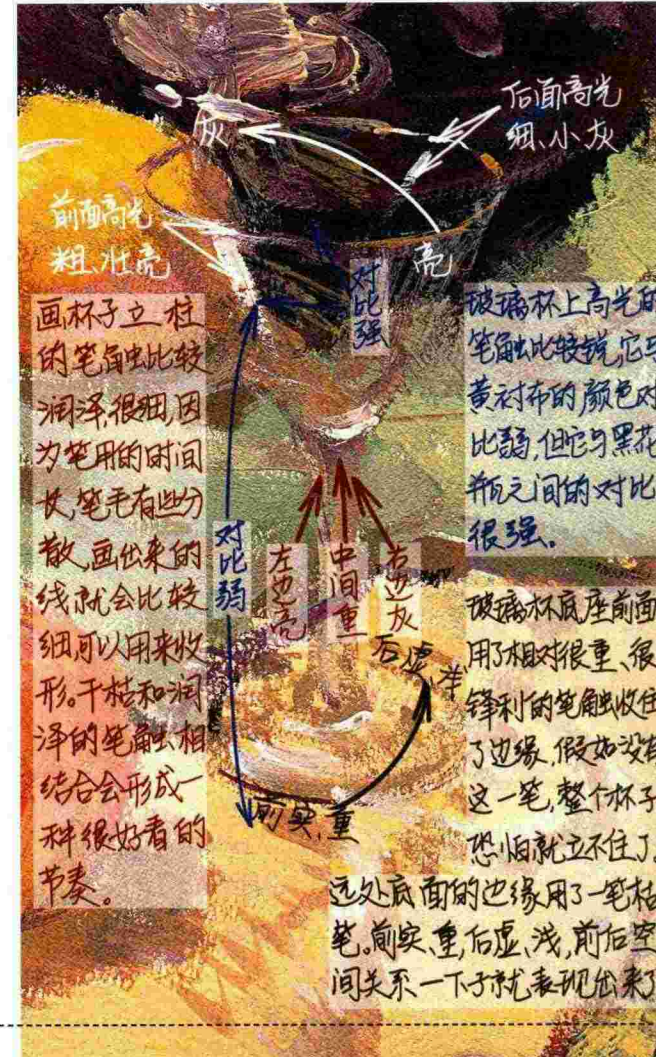 后面高光
细、小灰
灰
前面高光
粗、壮亮
亮
对比强
画杯子立柱
的笔触比较
润泽,很细,因
为笔用的时间
长,笔毛有些分
散,画出来的
线就会比较
细,可以用来收
形。干枯和润
泽的笔触相
结合会形成一
种很好看的
节奏。
玻璃杯上高光的
笔触比较锐,它与
黄衬布的颜色对
比弱,但它与黑花
瓶之间的对比
很强。
对比弱
左边亮
中间重
右边灰
后虚、浅
前实、重
玻璃杯底座前面
用了相对很重、很
锋利的笔触收住
了边缘,假如没有
这一笔,整个杯子
恐怕就立不住了。
远处底面的边缘用了一笔枯
笔。前实、重,后虚、浅,前后空
间关系一下子就表现出来了